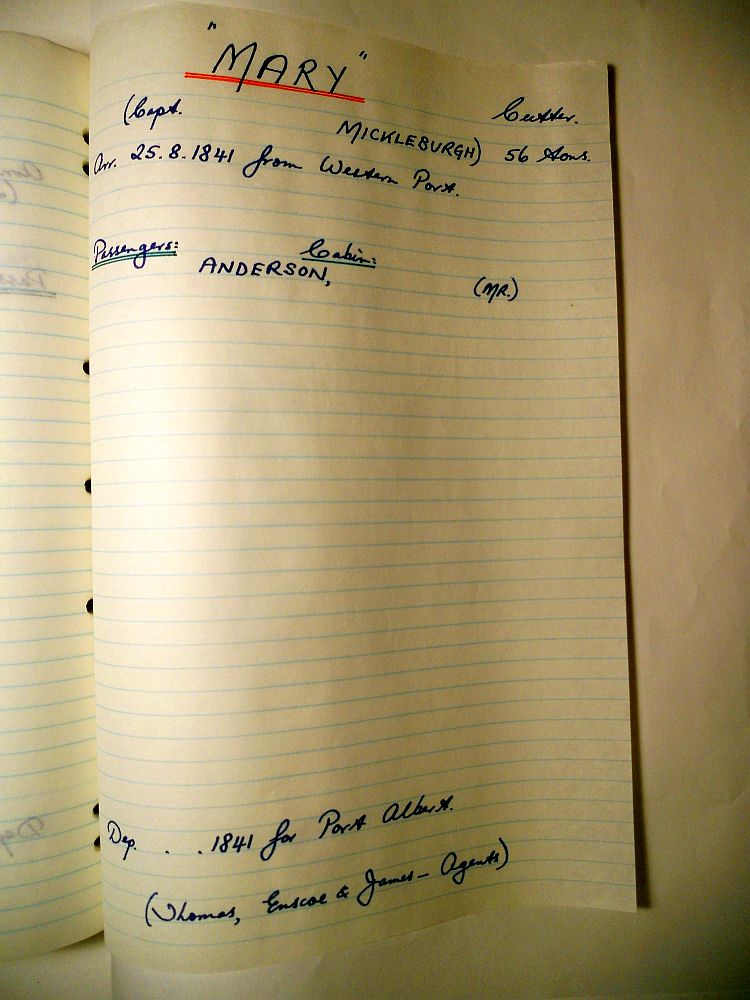 "MARY"
(Capt. Cutter.
MICKLEBURGH) 56 tons.
Arr. 25.8.1841 from Western Port.
Passengers: Cabin:
ANDERSON, (MR.)
Dep. . . 1841 for Port Albert.
(Thomas, Enscoe & James - Agents)